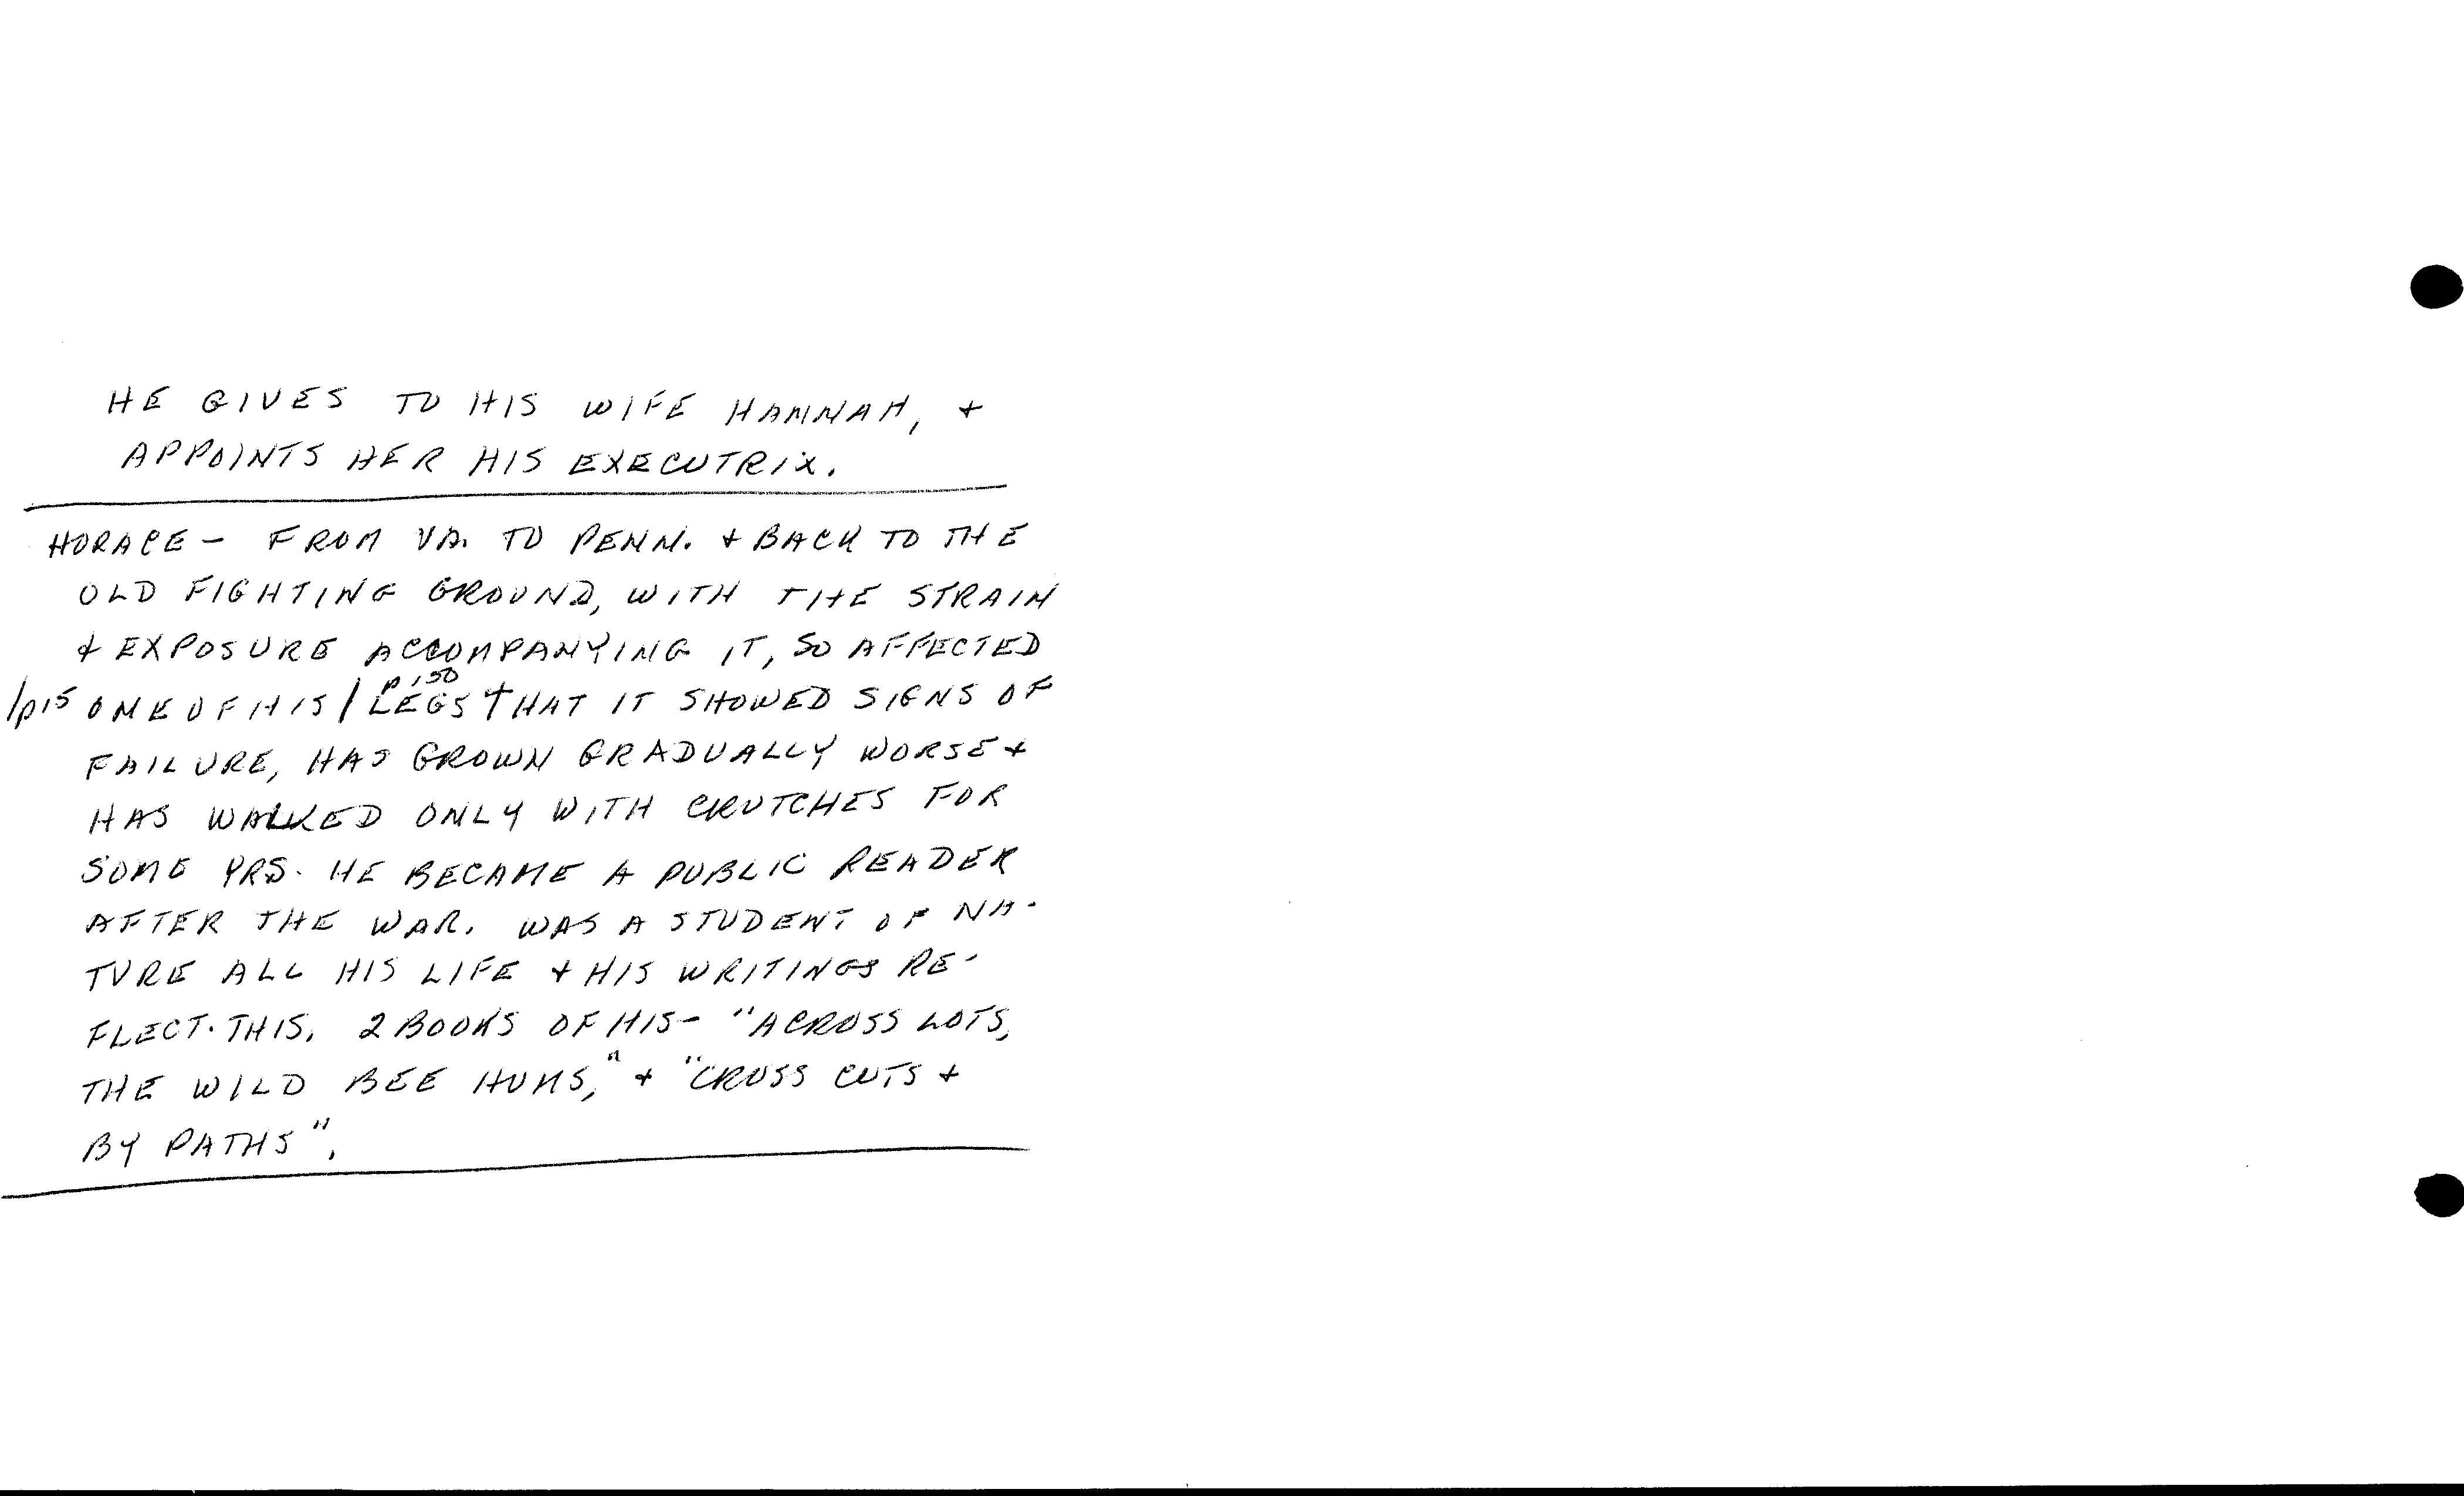 HE GIVES TO HIS WIFE HANNAH, +
APPOINTS HER HIS EXECUTRIX.
HORACE - FROM VA. TO PENN. + BACK TO THE
OLD FIGHTING GROUND, WITH THE STRAIN
+ EXPOSURE ACCOMPANYING IT, SO AFFECTED
p 150
/p15 ONE OF HIS / LEGS THAT IT SHOWED SIGNS OF
FAILURE, HAS GROWN GRADUALLY WORSE +
HAS WALKED ONLY WITH CRUTCHES FOR
SOME YRS. HE BECAME A PUBLIC READER
AFTER THE WAR. WAS A STUDENT OF NA-
TURE ALL HIS LIFE + HIS WRITINGS RE-
FLECT. THIS. 2 BOOKS OF HIS - "ACROSS LOTS,
THE WILD BEE HUMS," + "CROSS CUTS +
BY PATHS".